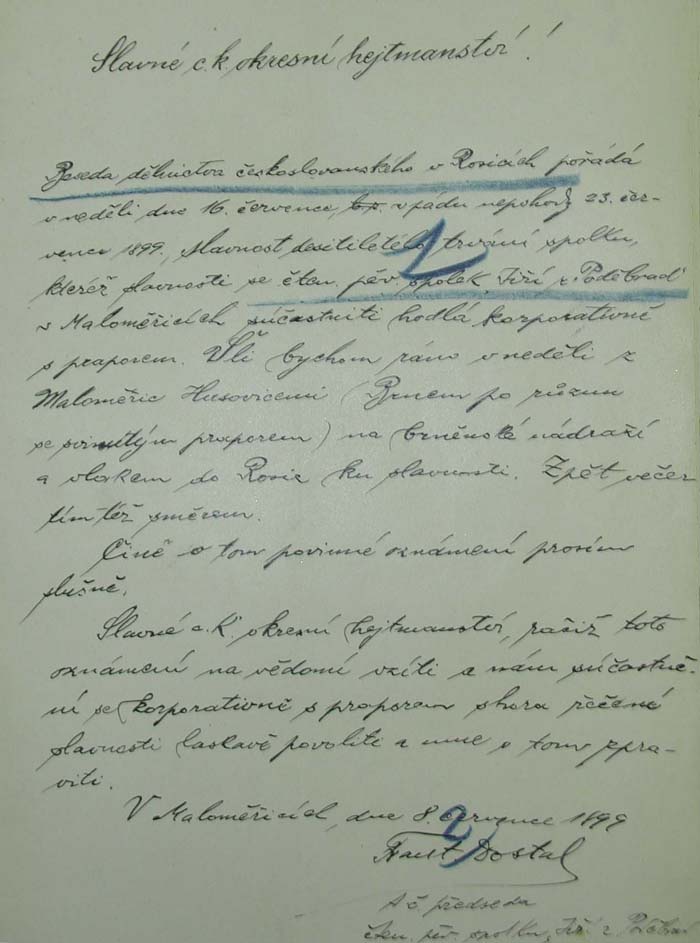 Slavné c. k. okresní hejtmanství!
Beseda dělnictva českoslovanského v Rosicích pořádá
v neděli dne 16. července, v pádu nepohody 23. čer-
vence 1899, slavnost desítiletého trvání spolku,
kteréž slavnosti se čten. pěv. spolek Jiří z Poděbrad
v Maloměřicích súčastniti hodlá korporativně
s praporem. Šli bychom ráno v neděli z
Maloměřic Husovicemi (Brnem po různu
se svinutým praporem) na brněnské nádraží
a vlakem do Rosic ku slavnosti. Zpět večer
tímtéž směrem.
Čině o tom povinné oznámení prosím
slušně.
Slavné c. k. okresní hejtmanství, račiž toto
oznámení na vědomí vzíti a nám súčastně-
ní se korporativně s praporem shora řečené
slavnosti laskavě povoliti a mne o tom zpra-
viti.
V Maloměřicích, dne 8. července 1899
2
Dostal
předseda
čten. pěv. spolku, Jiří z Poděbrad